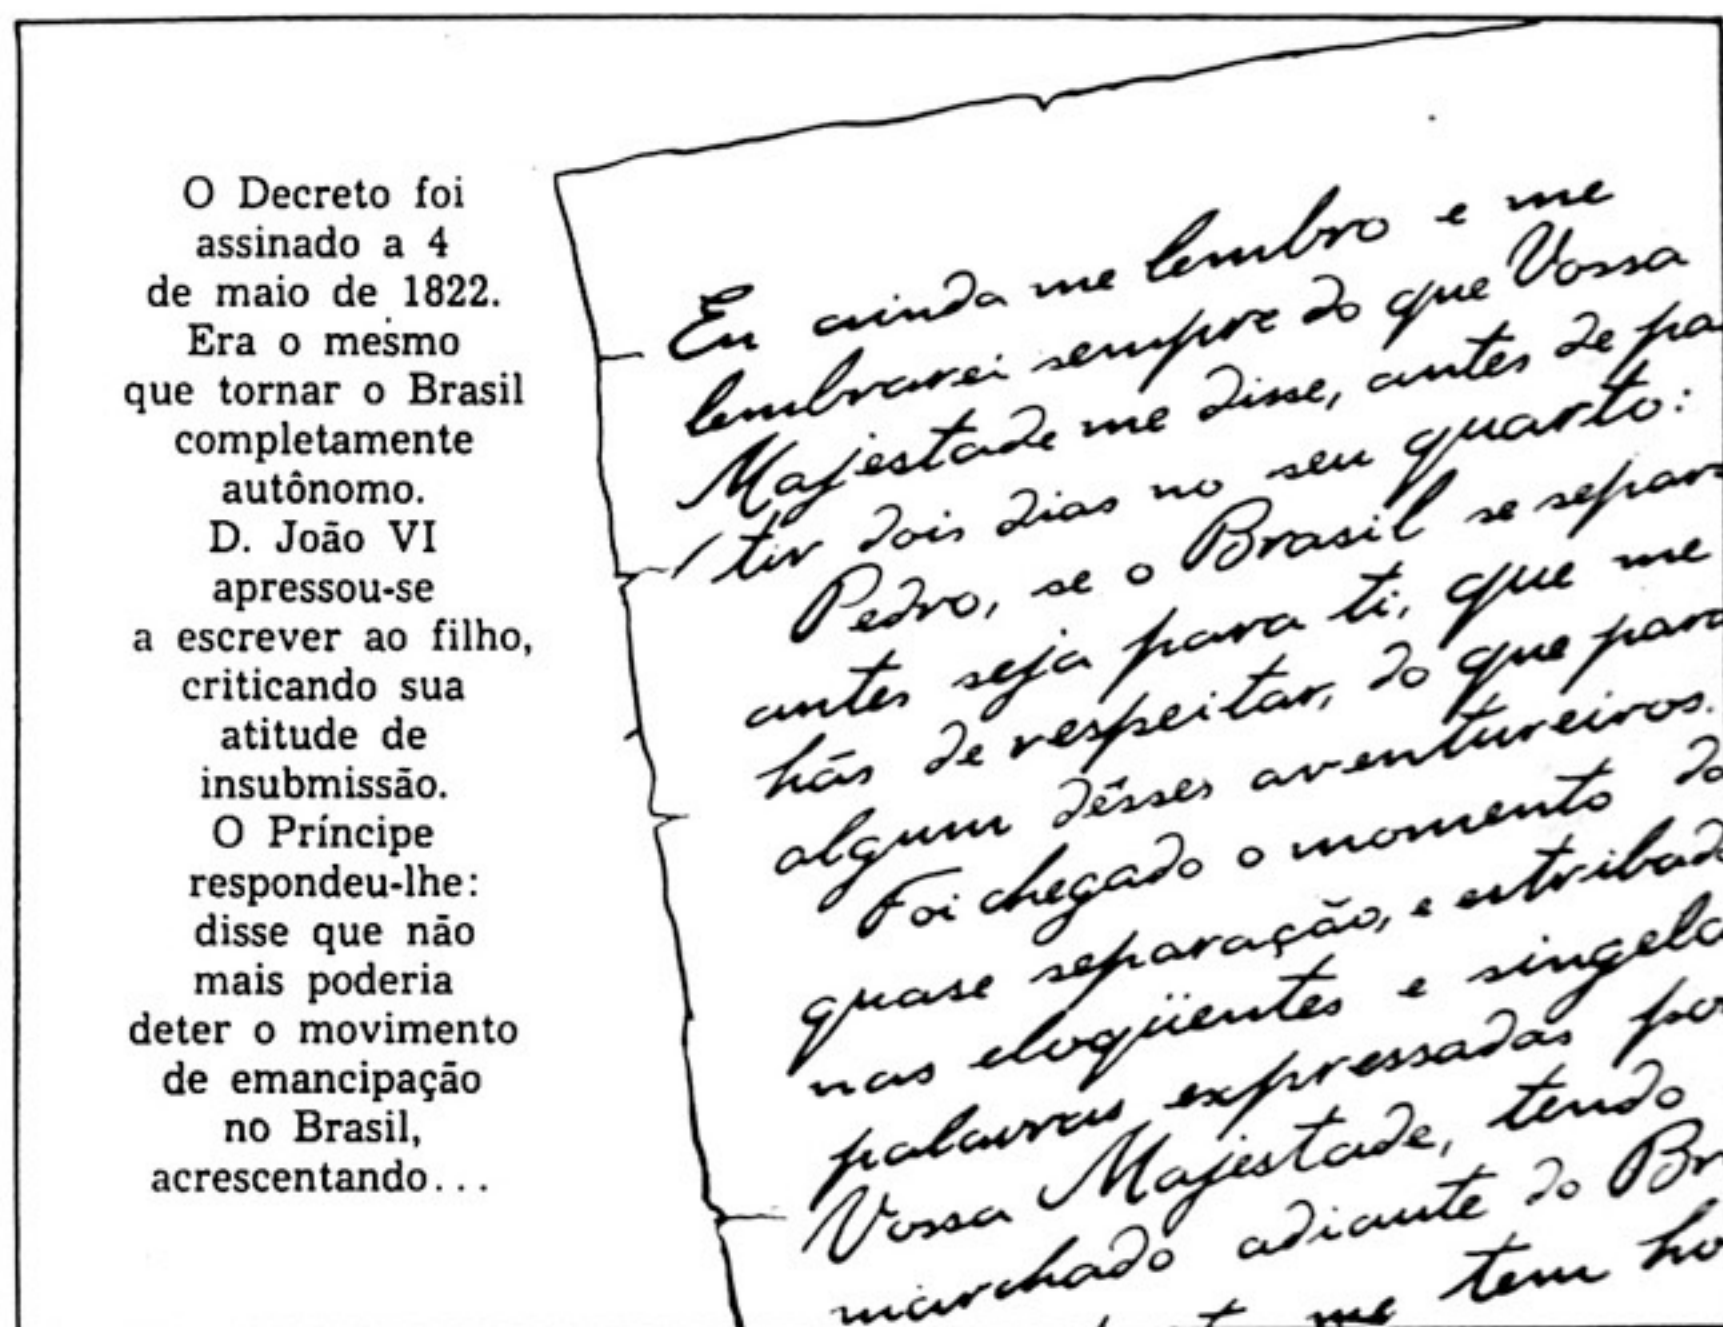 O Decreto foi
assinado a 4
de maio de 1822.
Era o mesmo
que tornar o Brasil
completamente
autônomo.
D. João VI
apressou-se
a escrever ao filho,
criticando sua
atitude de
insubmissão.
O Príncipe
respondeu-lhe:
disse que não
mais poderia
deter o movimento
de emancipação
no Brasil,
acrescentando...
Eu ainda me lembro e me
lembrarei sempre do que Vossa
Majestade me disse, antes de pa
tir dois dias no seu quarto:
Pedro, se o Brasil se separa
antes seja para ti, que me
hás de respeitar, do que para
algum dêsses aventureiros.
Foi chegado o momento da
quase separação, e estribado
nas eloqüentes e singela
palavras expressadas por
Vossa Majestade, tendo
marchado adiante do Br
me tem ho